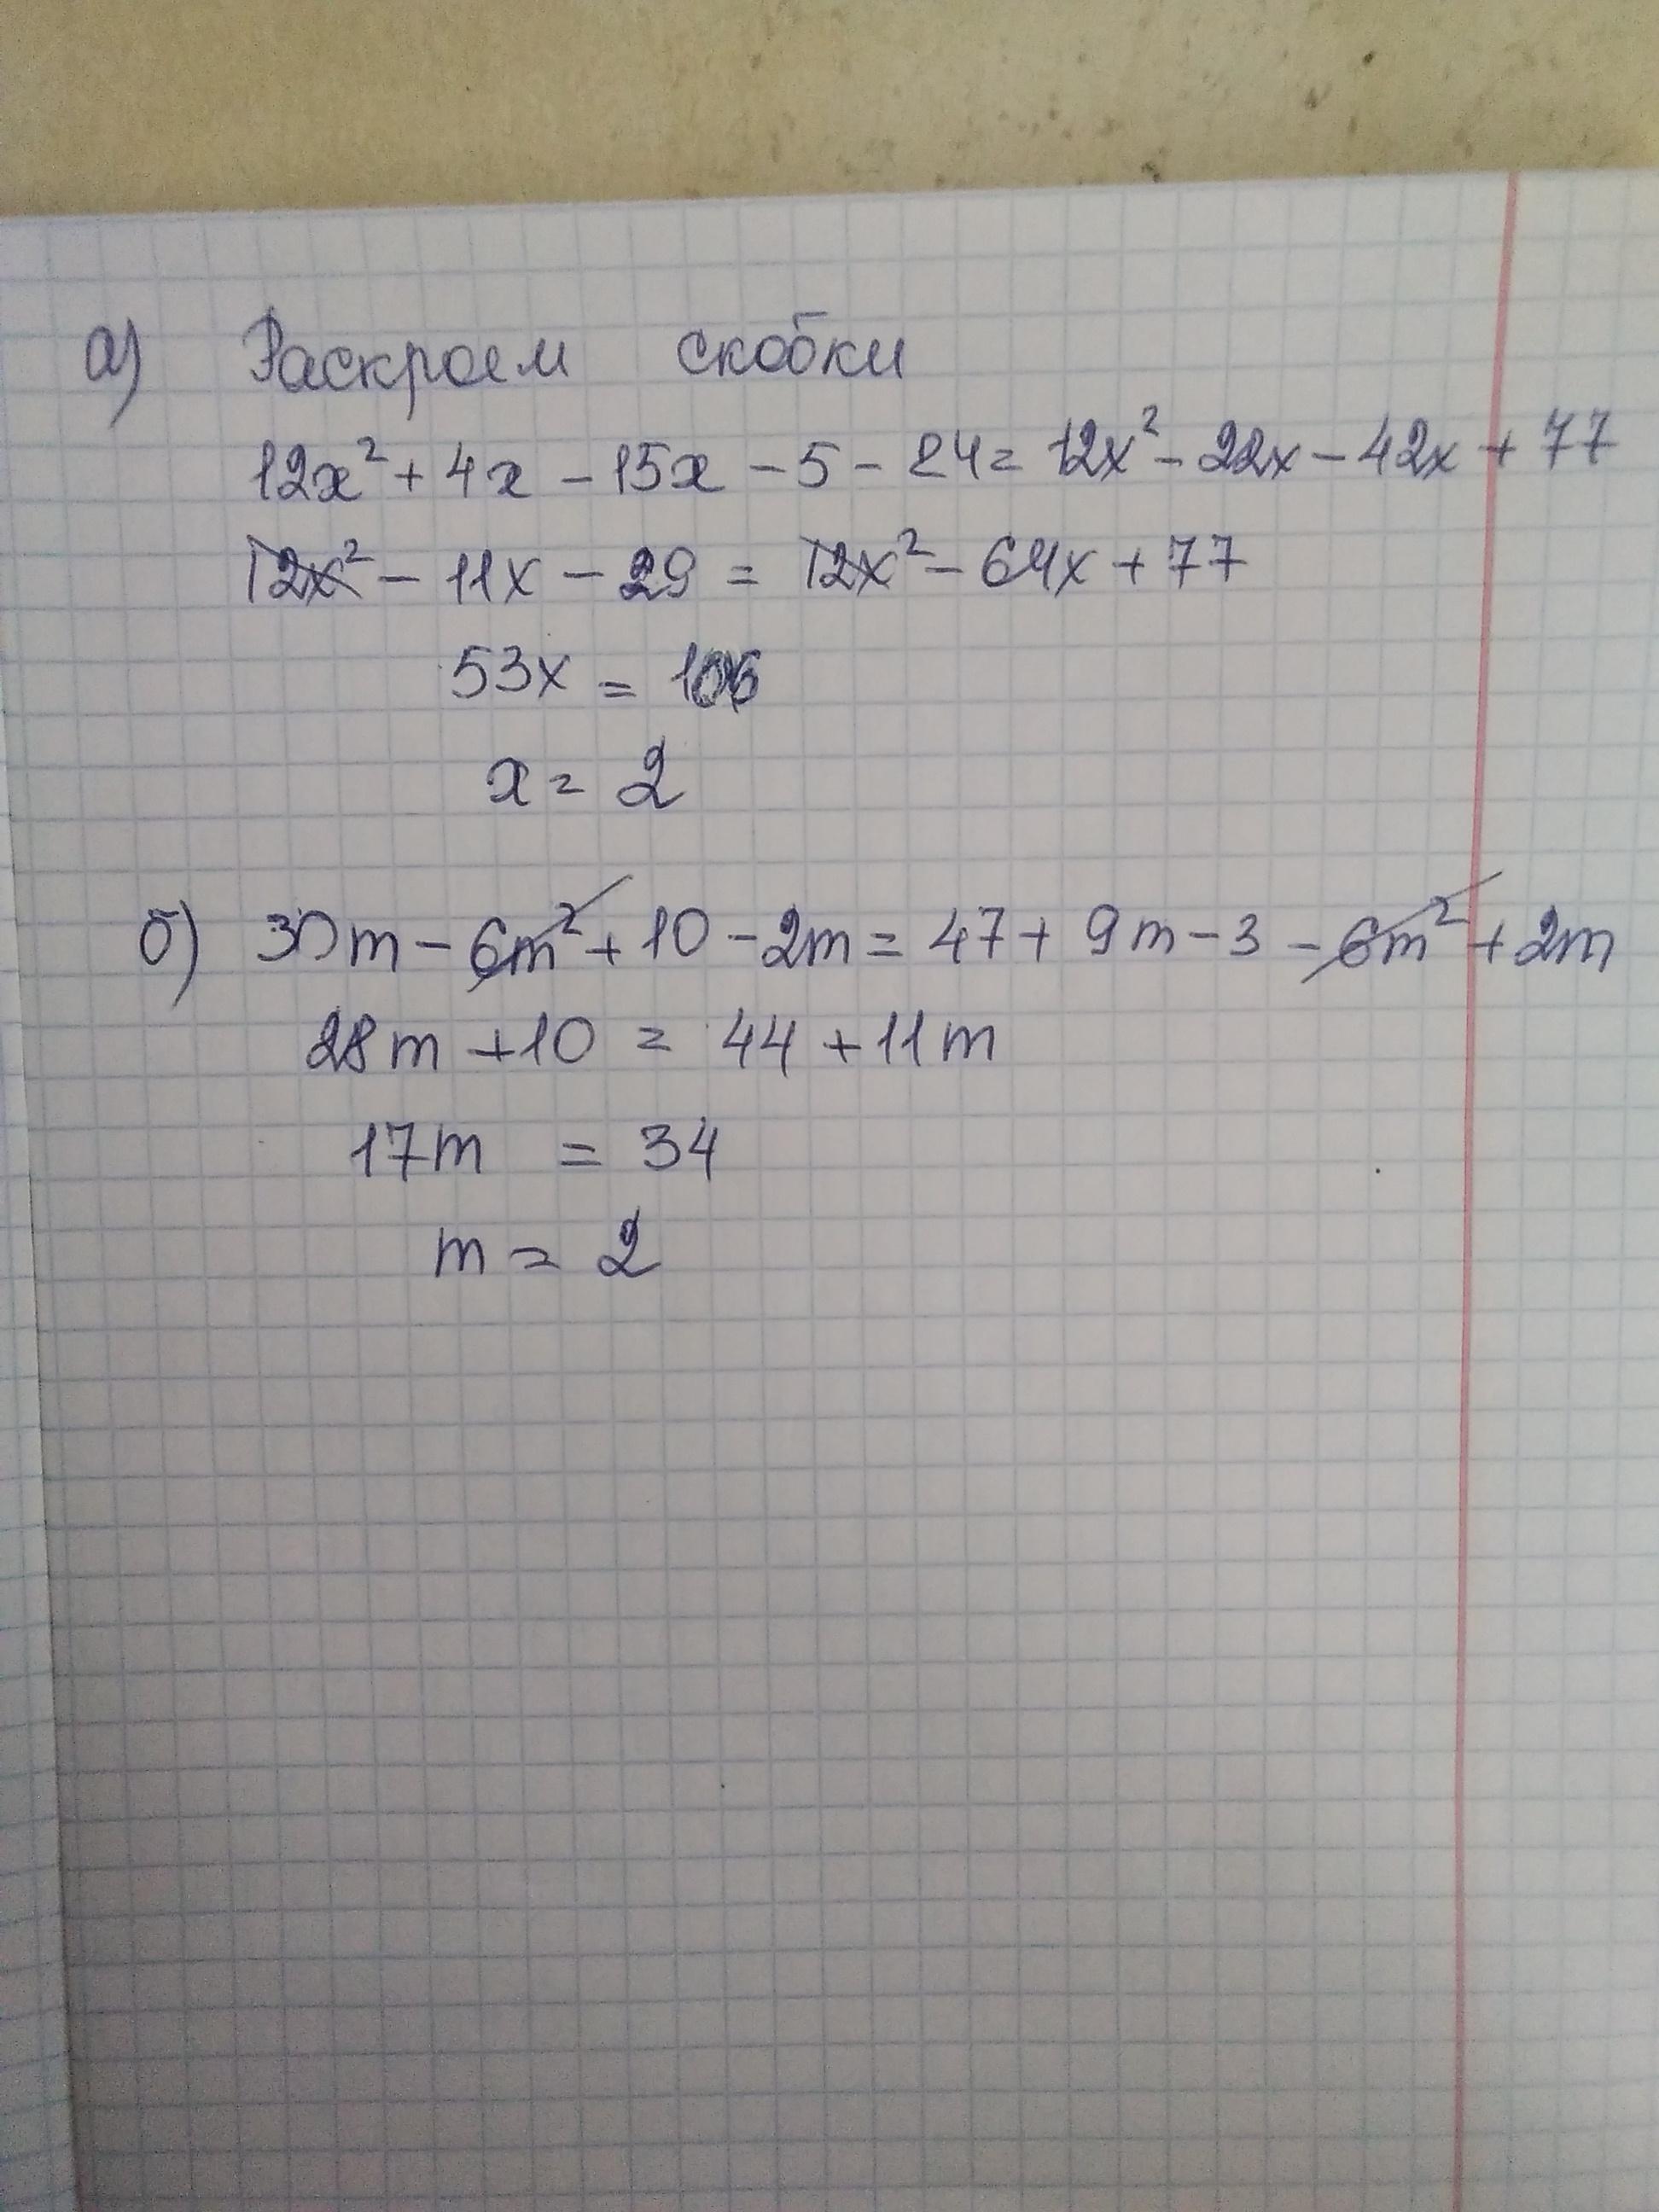 а) Раскроем скобки
12x² + 4x - 15x - 5 - 24 = 12x² - 22x - 42x + 77
12x² - 11x - 29 = 12x² - 64x + 77
53x = 106
x = 2
б) 30m - 6m² + 10 - 2m = 47 + 9m - 3 - 6m² + 2m
28m + 10 = 44 + 11m
17m = 34
m = 2